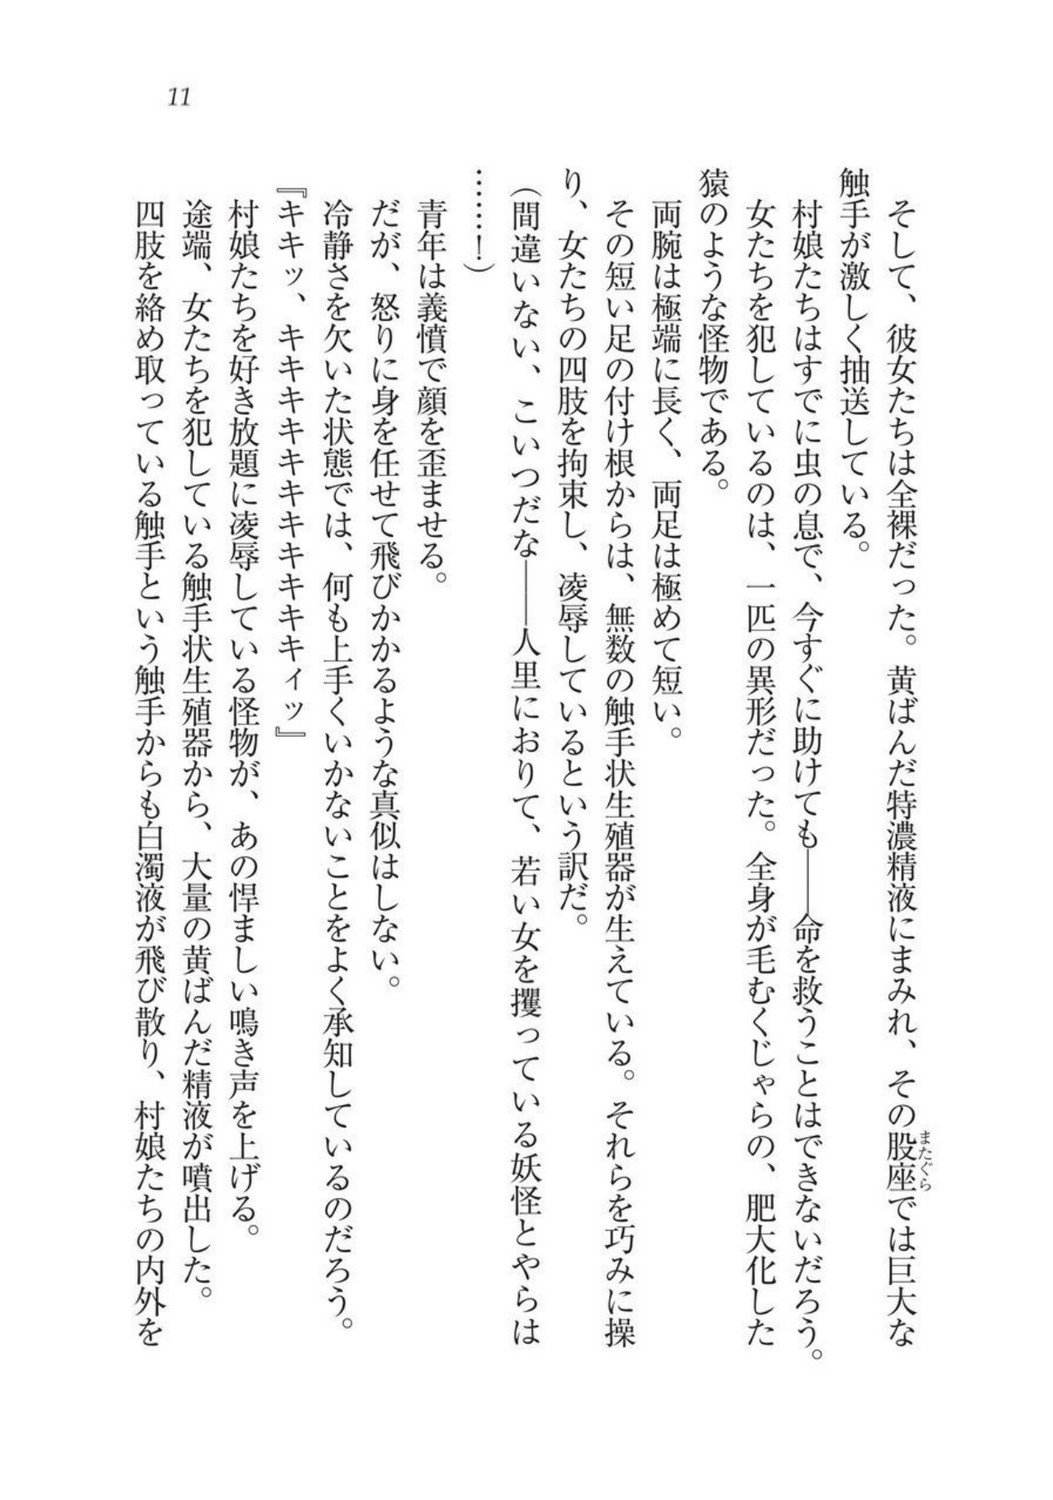 11
そして、彼女たちは全裸だった。黄ばんだ特濃精液にまみれ、その股座では巨大な
またぐら
触手が激しく抽送している。
村娘たちはすでに虫の息で、今すぐに助けても――命を救うことはできないだろう。
女たちを犯しているのは、一匹の異形だった。全身が毛むくじゃらの、肥大化した
猿のような怪物である。
両腕は極端に長く、両足は極めて短い。
その短い足の付け根からは、無数の触手状生殖器が生えている。それらを巧みに操
り、女たちの四肢を拘束し、凌辱しているという訳だ。
（間違いない、こいつだな――人里におりて、若い女を攫っている妖怪とやらは
……！）
青年は義憤で顔を歪ませる。
だが、怒りに身を任せて飛びかかるような真似はしない。
冷静さを欠いた状態では、何も上手くいかないことをよく承知しているのだろう。
『キキッ、キキキキキキキキキキィッ』
村娘たちを好き放題に凌辱している怪物が、あの悍ましい鳴き声を上げる。
途端、女たちを犯している触手状生殖器から、大量の黄ばんだ精液が噴出した。
四肢を絡め取っている触手という触手からも白濁液が飛び散り、村娘たちの内外を